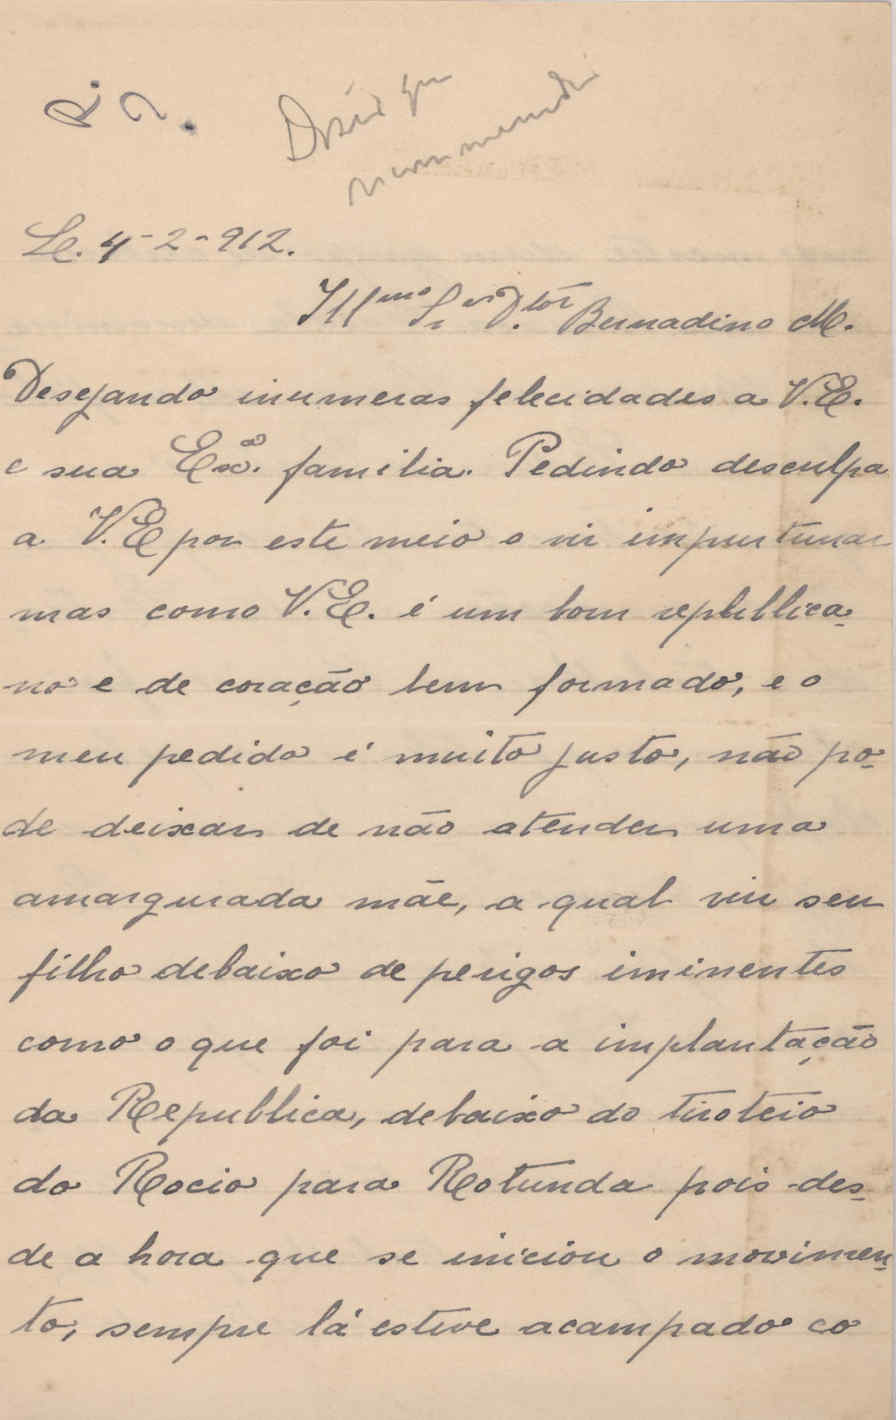 R.
Le. 4-2-912.
Illmo Snr Dtor Bernadino M.
Desejando inumeras felecidades a V.E.
e sua Exa. familia. Pedindo desculpa
a V.E por este meio o vir impurtunar
mas como V.E. é um bom republlica-
no e de coração bem formado, e o
meu pedido é muito justo, não po-
de deixar de não atender uma
amargurada mãe, a qual viu seu
filho debaixo de perigos iminentes
como o que foi para a implantação
da Republlica, debaixo do tiroteio
do Rocio para Rotunda pois des-
de a hora que se iniciou o movimen-
to, sempre lá esteve acampado co